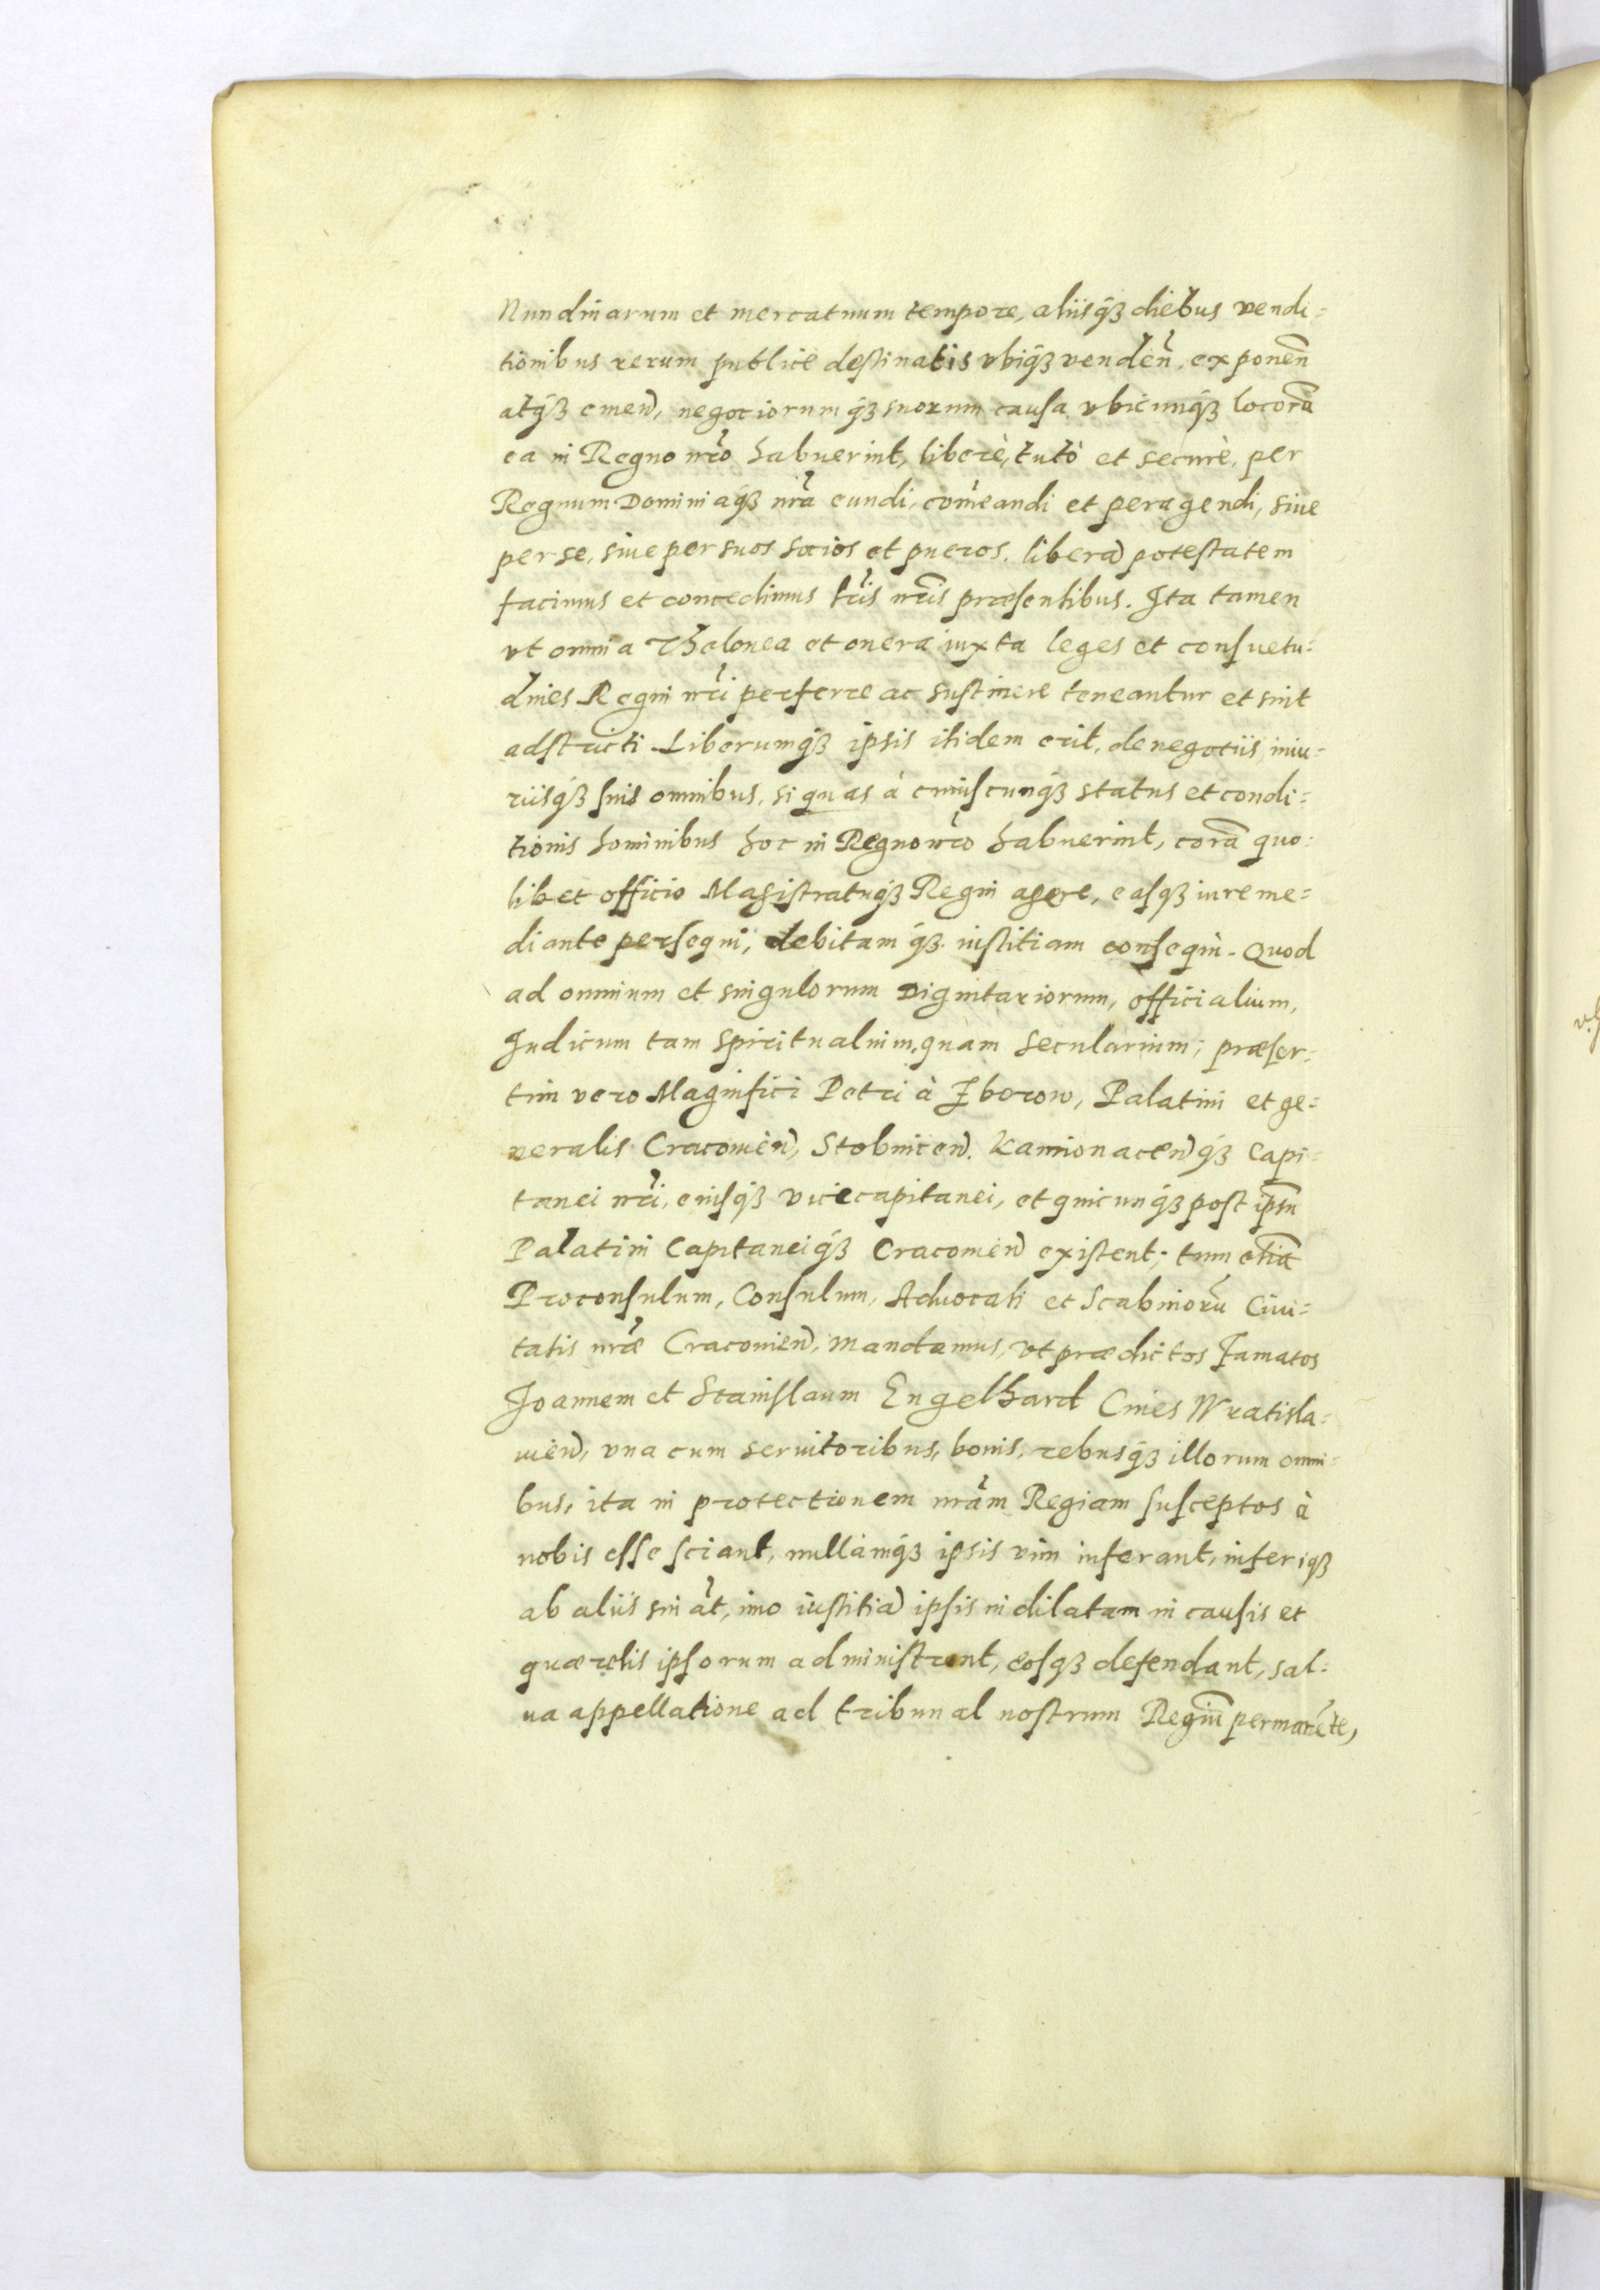 Nundinarum et mercatuum tempore, aliisq́ꝫ diebus vendi=
tionibus rerum publice destinatis vbiq́ꝫ venden̄, exponen̄
atq́ꝫ emen̄, negociorumq́ꝫ suorum causa vbicunq́ꝫ locorū
ea in Regno nr̄o habuerint, liberè, tutò et securè, per
Regnum Dominiaq́ꝫ nr̄a eundi, com̄eandi et peragendi, siue
per se, siue per suos socios et pueros, liberā potestatem
facimus et concedimus lr̄is nr̄is præsentibus. Ita tamen
vt omnia Thelonea et onera iuxta leges et consuetu=
dines Regni nr̄i perferre ac sustinere teneantur et sint
adstricti Liberumq́ꝫ ipsis itidem erit, de negotiis, iniu=
riisq́ꝫ suis omnibus, si quas à cuiuscunq́ꝫ status et condi=
tionis hominibus hoc in Regno nr̄o habuerint, corā quo=
libet officio Magistratuq́ꝫ Regni agere, easqꝫ iure me=
diante persequi, debitamq́ꝫ iustitiam consequi. Quod
ad omnium et singulorum Dignitariorum, officialium,
Iudicum tam spiritualium, quam secularium, præser=
tim vero Magnifici Petri à Zborow, Palatini et ge=
neralis Cracouien̄, Stobnicen̄. Kamionacen̄q́ꝫ Capi=
tanei nr̄i, eiusq́ꝫ vicecapitanei, et quicunq́ꝫ post ipsū
Palatini Capitaneiq́ꝫ Cracouien̄ existent, tum etiā
Proconsulum, Consulum, Aduocati et Scabinorū Ciui=
tatis nr̄æ Cracouien̄, mandamus, vt prædictos Famatos
Ioannem et Stanislaum Engelhard Ciues Wratisla=
uien̄, vna cum seruitoribus, bonis, rebusq́ꝫ illorum omni=
bus, ita in protectionem nr̄am Regiam susceptos à
nobis esse sciant, nullamq́ꝫ ipsis vim inferant, inferiqꝫ
ab aliis sināt, imo iustitiā ipsis indilatam in causis et
quærelis ipsorum administrent, eosqꝫ defendant, sal=
ua appellatione ad tribunal nostrum Regiū permanēte,